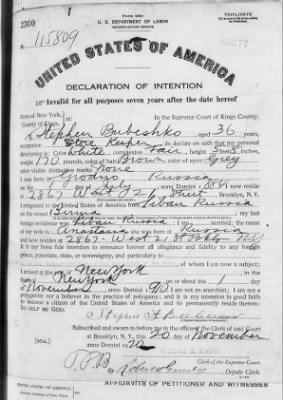 Form 2203
TRIPLICATE
2300
U. S. DEPARTMENT OF LABOR
NATURALIZATION SERVICE
115809
UNITED STATES OF AMERICA
DECLARATION OF INTENTION
Invalid for all purposes seven years after the date hereof
State of New York,
In the Supreme Court of Kings County.
County of Kings,
I, Stephen Bubeshko, aged 36 years,
occupation Store Keeper, do declare on oath that my personal
description is: Color White, complexion Fair, height 5 feet 5 inches,
weight 170 pounds, color of hair Brown, color of eyes Grey
other visible distinctive marks None
I was born in Grodno Russia
on the day of July, anno Domini; I now reside
at 2867 West 2 Street, Brooklyn, N.Y.
I emigrated to the United States of America from Libau Russia
on the vessel Birma; my last
foreign residence was Libau Russia; I am married; the name
of my wife is Anastasia; she was born in Russia
and now resides at 2867 West 2 St Bklyn NY
It is my bona fide intention to renounce forever all allegiance and fidelity to any foreign
prince, potentate, state, or sovereignty, and particularly to
of whom I am now a subject;
I arrived at the port of New York, in the
State of New York, on or about the 1 day
of November, anno Domini 1910; I am not an anarchist; I am not a
polygamist nor a believer in the practice of polygamy; and it is my intention in good faith
to become a citizen of the United States of America and to permanently reside therein:
SO HELP ME GOD.
Subscribed and sworn to before me in the office of the Clerk of said Court
at Brooklyn, N. Y., this 20 day of November
[SEAL]
anno Domini 1920
Clerk of the Supreme Court.
Deputy Clerk.
AFFIDAVITS OF PETITIONER AND WITNESSES
UNITED STATES OF AMERICA